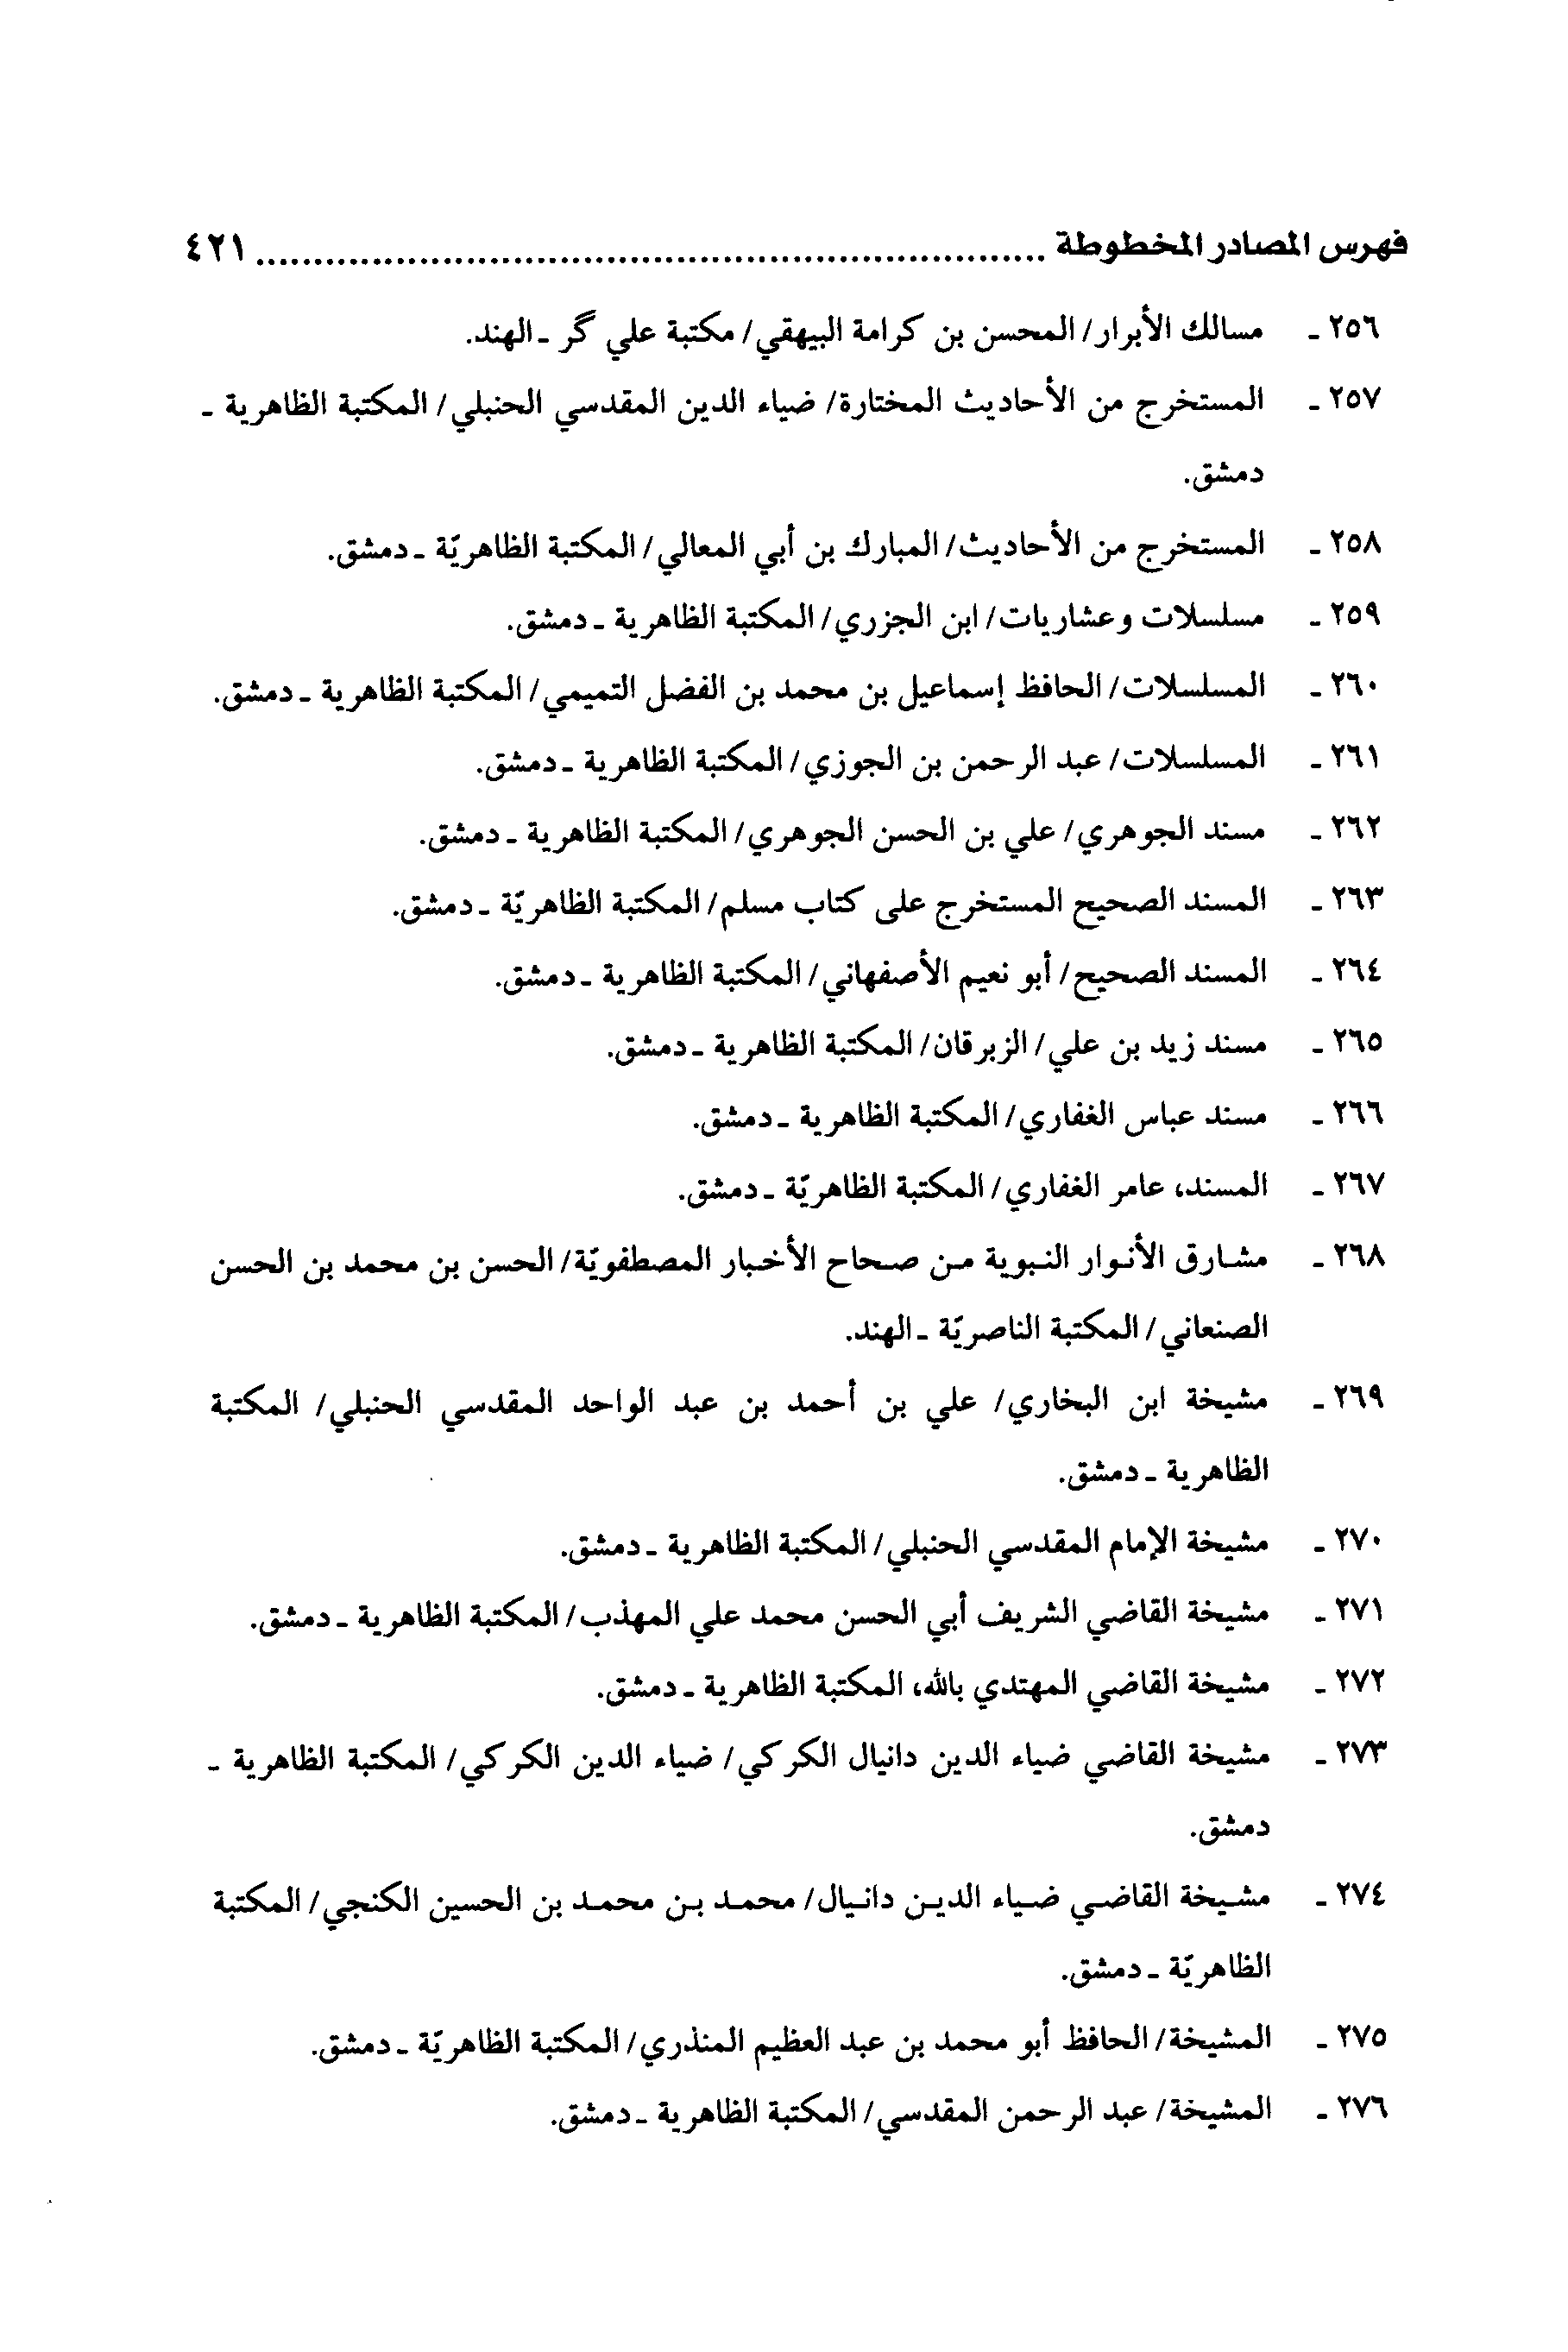 فهرس المصادر المخطوطة ................................................................ ٤٢١
٢٥٦ ـ مسالك الأبرار/ المحسن بن كرامة البيهقي/ مكتبة علي گر ـ الهند.
٢٥٧ ـ المستخرج من الأحاديث المختارة/ ضياء الدين المقدسي الحنبلي/ المكتبة الظاهرية ـ
دمشق.
٢٥٨ ـ المستخرج من الأحاديث/ المبارك بن أبي المعالي/ المكتبة الظاهريّة ـ دمشق.
٢٥٩ ـ مسلسلات وعشاريات/ ابن الجزري/ المكتبة الظاهرية ـ دمشق.
٢٦٠ ـ المسلسلات/ الحافظ إسماعيل بن محمد بن الفضل التميمي/ المكتبة الظاهرية ـ دمشق.
٢٦١ ـ المسلسلات/ عبد الرحمن بن الجوزي/ المكتبة الظاهرية ـ دمشق.
٢٦٢ ـ مسند الجوهري/ علي بن الحسن الجوهري/ المكتبة الظاهرية ـ دمشق.
٢٦٣ ـ المسند الصحيح المستخرج على كتاب مسلم/ المكتبة الظاهريّة ـ دمشق.
٢٦٤ ـ المسند الصحيح/ أبو نعيم الأصفهاني/ المكتبة الظاهرية ـ دمشق.
٢٦٥ ـ مسند زيد بن علي/ الزبرقان/ المكتبة الظاهرية ـ دمشق.
٢٦٦ ـ مسند عباس الغفاري/ المكتبة الظاهرية ـ دمشق.
٢٦٧ ـ المسند، عامر الغفاري/ المكتبة الظاهريّة ـ دمشق.
٢٦٨ ـ مشارق الأنوار النبوية من صحاح الأخبار المصطفويّة/ الحسن بن محمد بن الحسن
الصنعاني/ المكتبة الناصريّة ـ الهند.
٢٦٩ ـ مشيخة ابن البخاري/ علي بن أحمد بن عبد الواحد المقدسي الحنبلي/ المكتبة
الظاهرية ـ دمشق.
٢٧٠ ـ مشيخة الإمام المقدسي الحنبلي/ المكتبة الظاهرية ـ دمشق.
٢٧١ ـ مشيخة القاضي الشريف أبي الحسن محمد علي المهذب/ المكتبة الظاهرية ـ دمشق.
٢٧٢ ـ مشيخة القاضي المهتدي بالله، المكتبة الظاهرية ـ دمشق.
٢٧٣ ـ مشيخة القاضي ضياء الدين دانيال الكركي/ ضياء الدين الكركي/ المكتبة الظاهرية ـ
دمشق.
٢٧٤ ـ مشيخة القاضي ضياء الدين دانيال/ محمد بن محمد بن الحسين الكنجي/ المكتبة
الظاهريّة ـ دمشق.
٢٧٥ ـ المشيخة/ الحافظ أبو محمد بن عبد العظيم المنذري/ المكتبة الظاهريّة ـ دمشق.
٢٧٦ ـ المشيخة/ عبد الرحمن المقدسي/ المكتبة الظاهرية ـ دمشق.